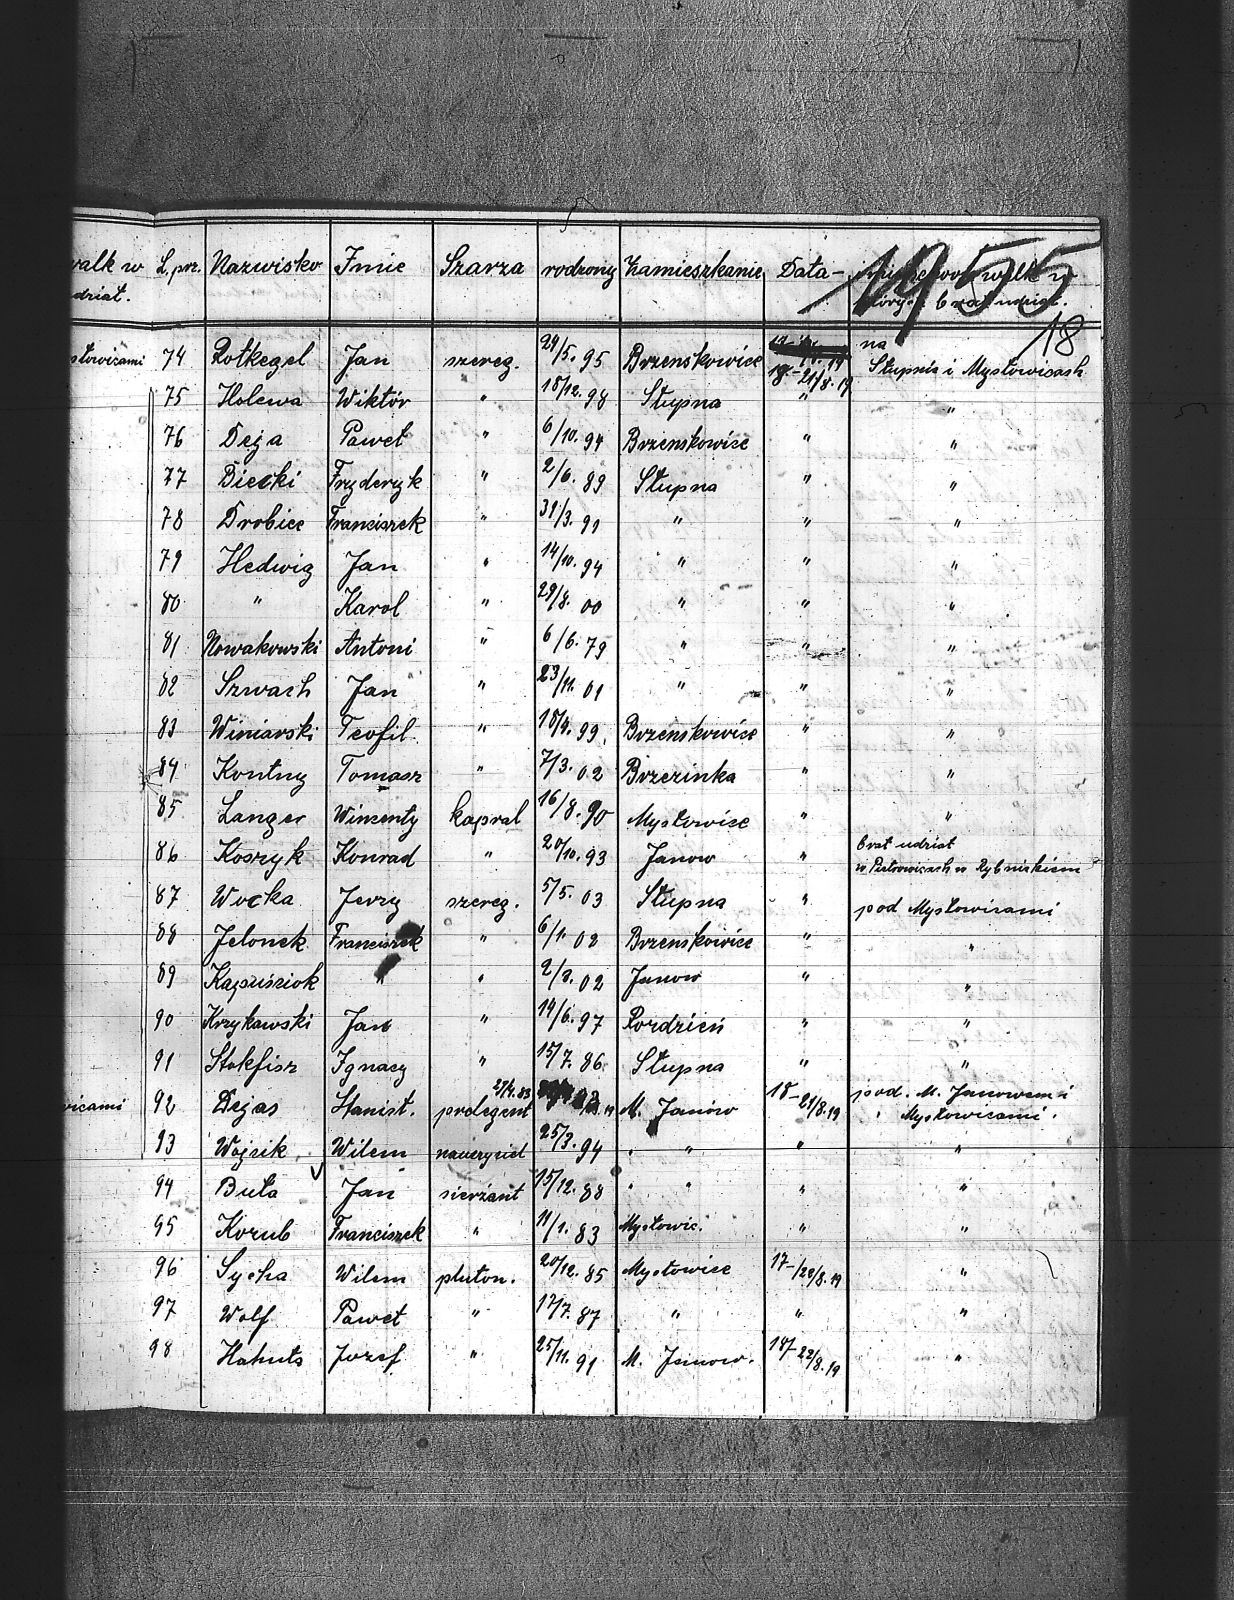 walk w L.prz. Nazwisko Imie Szarża rodzony Zamieszkanie Data
udział. brał udział.
1955
18
74 Rotkegel Jan szereg. 29/5. 95 Brzenskowice 18.-21/8.19 na Słupnie i Mysłowicach
75 Holewa Wiktór " 18/12. 98 Słupna " "
76 Deja Paweł " 6/10. 94 Brzenskowice " "
77 Biecki Fryderyk " 2/6. 89 Słupna " "
78 Drobiec Franciszek " 31/3. 91 " " "
79 Hedwig Jan " 14/10. 94 " " "
80 " Karol " 29/8. 00 " " "
81 Nowakowski Antoni " 6/6. 79 " " "
82 Szwach Jan " 23/11. 01 " " "
83 Winiarski Teofil " 18/4. 99 Brzenskowice " "
84 Kontny Tomasz " 7/3. 02 Brzezinka " "
85 Langer Wincenty kapral 16/8. 90 Mysłowice " "
86 Koszyk Konrad " 20/10. 93 Janow " brał udział
w Piotrowicach w Rybnickiem
87 Wocka Jerzy szereg. 5/5. 03 Słupna " pod Mysłowicami
88 Jelonek Franciszek " 6/1. 02 Brzenskowice " "
89 Kapuściok " " 2/8. 02 Janow " "
90 Krzykawski Jan " 14/6. 97 Rozdzień " "
91 Stokfisz Ignacy " 15/7. 86 Słupna "
27/4.83
92 Dejas Stanisł. prolegent M. Janów 18-21/8.19 pod. M. Janowem i
Mysłowicami.
93 Wojcik Wilem nauczyciel 25/3. 94 " " " "
94 Buła Jan sierżant 15/12. 88 " " " "
95 Korub Franciszek " 11/1. 83 Mysłowic. " "
96 Sycha Wilem pluton. 20/12. 85 Mysłowice 17-/22/8.19 "
97 Wolf Paweł " 17/7. 87 " " "
98 Hahuts Jozef " 25/11. 91 M. Janow. 18/-22/8.19 "